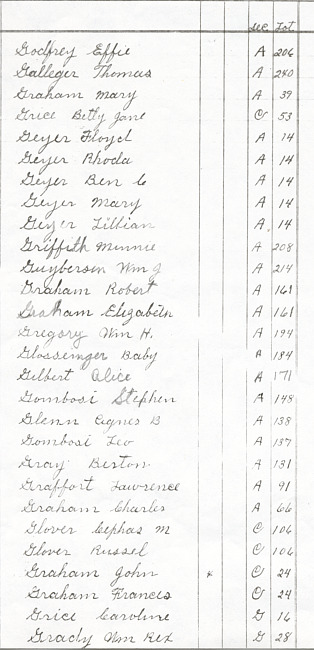 Sec Lot
Godfrey Effie A 206
Galleger Thomas A 240
Graham Mary A 39
Grice Betty Jane C 53
Geyer Floyd A 14
Geyer Rhoda A 14
Geyer Ben C A 14
Geyer Mary A 14
Geyer Lillian A 14
Griffith Minnie A 208
Guybersen Wm J A 214
Graham Robert A 161
Graham Elizabeth A 161
Gregory Wm H. A 194
Glossenger Baby A 184
Gilbert Alice A 171
Gombosi Stephen A 148
Glenn Agnes B A 138
Gombosi Leo A 137
Gray Berton A 131
Graffort Lawrence A 91
Graham Charles A 66
Glover Cephas M C 106
Glover Russel C 106
Graham John * C 24
Graham Francis C 24
Grice Caroline G 16
Grady Wm Rex G 28